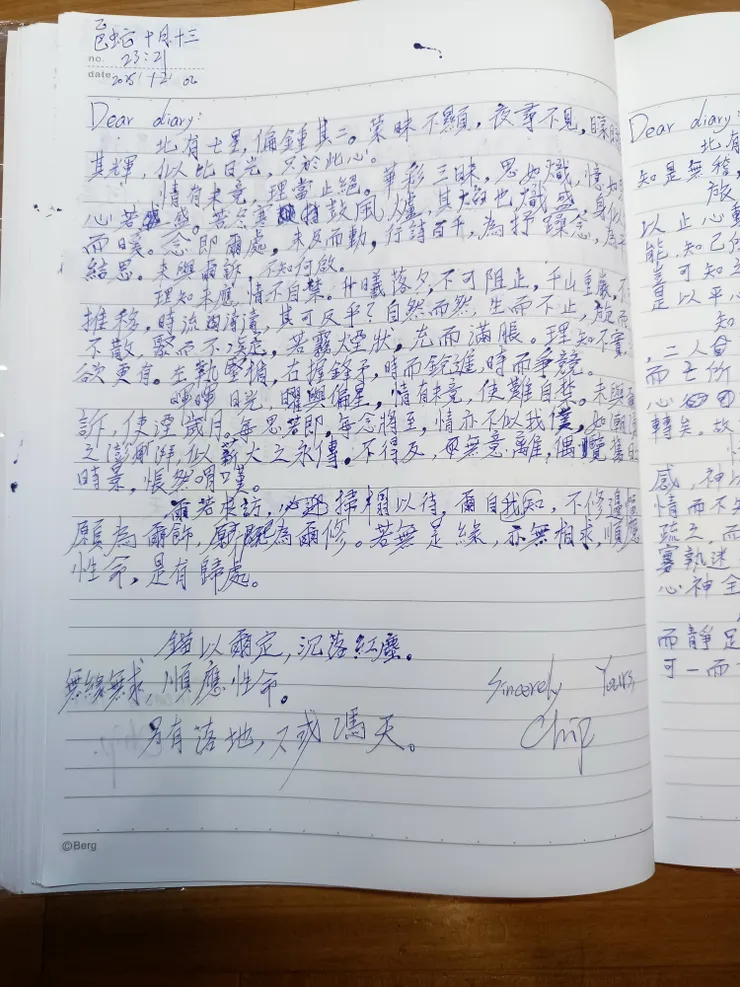 乙
巴蛇 十月十三
no. 23:21
date 2025/12/02
Dear diary:
北有七星,偏鍾其三。葉昧不顯,夜尋不見,
其輝,似比日光,只於此心!
情有未竟,理當止絕。華彩三昧,思如熾,憶如
心若盛。若冬寒 特鼓風爐,其大放也熾盛,身似
而暖。念即爾處,未反而動,行諸百千,為抒躁念,為
結思。未與爾訴,不知何啟。
理知未應,情不自禁。升曦落夕,不可阻止,千山重巖,不
推移,時流淌清,其可反乎?自然而然,生而不止,放而
不散,聚而不凌,若霧煙狀,充而滿脹。理知不實,
欲更有。左執堅楯,右握鋒矛,時而銳進,時而爭競。
暉暉日光,曜與偏星,情有未竟,使難自禁。未與爾
訴,使湮歲月。每思若即,每念將至,情亦不似我僕,如潮
之澎湃,似薪火之永傳。不得反,毋無意離,偶覽舊日
時景,悵多喟嘆。
爾若來訪,必迎掃榻以待,爾自我知,不修邊幅
願為爾飾,願為爾修。若無是緣,亦無相求,順應
性命,是有歸處。
錨以爾定,沉落紅塵。
無緣無求,順應性命。
乃有落地,不或馮天。
Sincerely Yours
Chip
©Berg
Dear diary:
北有
知是無稽,
放
以止心動
能,知己所
豈可知之
是以平心
知
,二人
而亡所
心
轉矣。故
感,神以
情而不知
疏之,而
寥執迷
心神全
而靜足
可一而